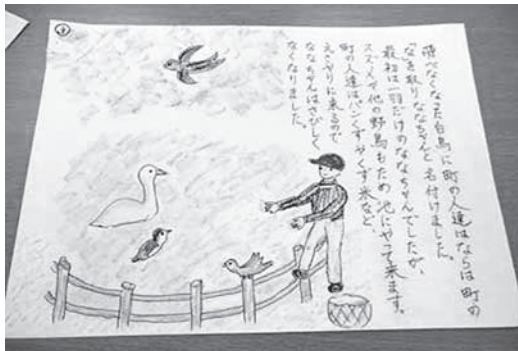 飛べなくなった白鳥に町の人達はならは町の
「な」を取りななちゃんと名付けました。
最初は一羽だけのななちゃんでしたが、
スズメや他の野鳥もため池にやって来ます。
町の人達はパンくずやくず米など、
えさやりに来るので
ななちゃんはさびしく
なくなりました。